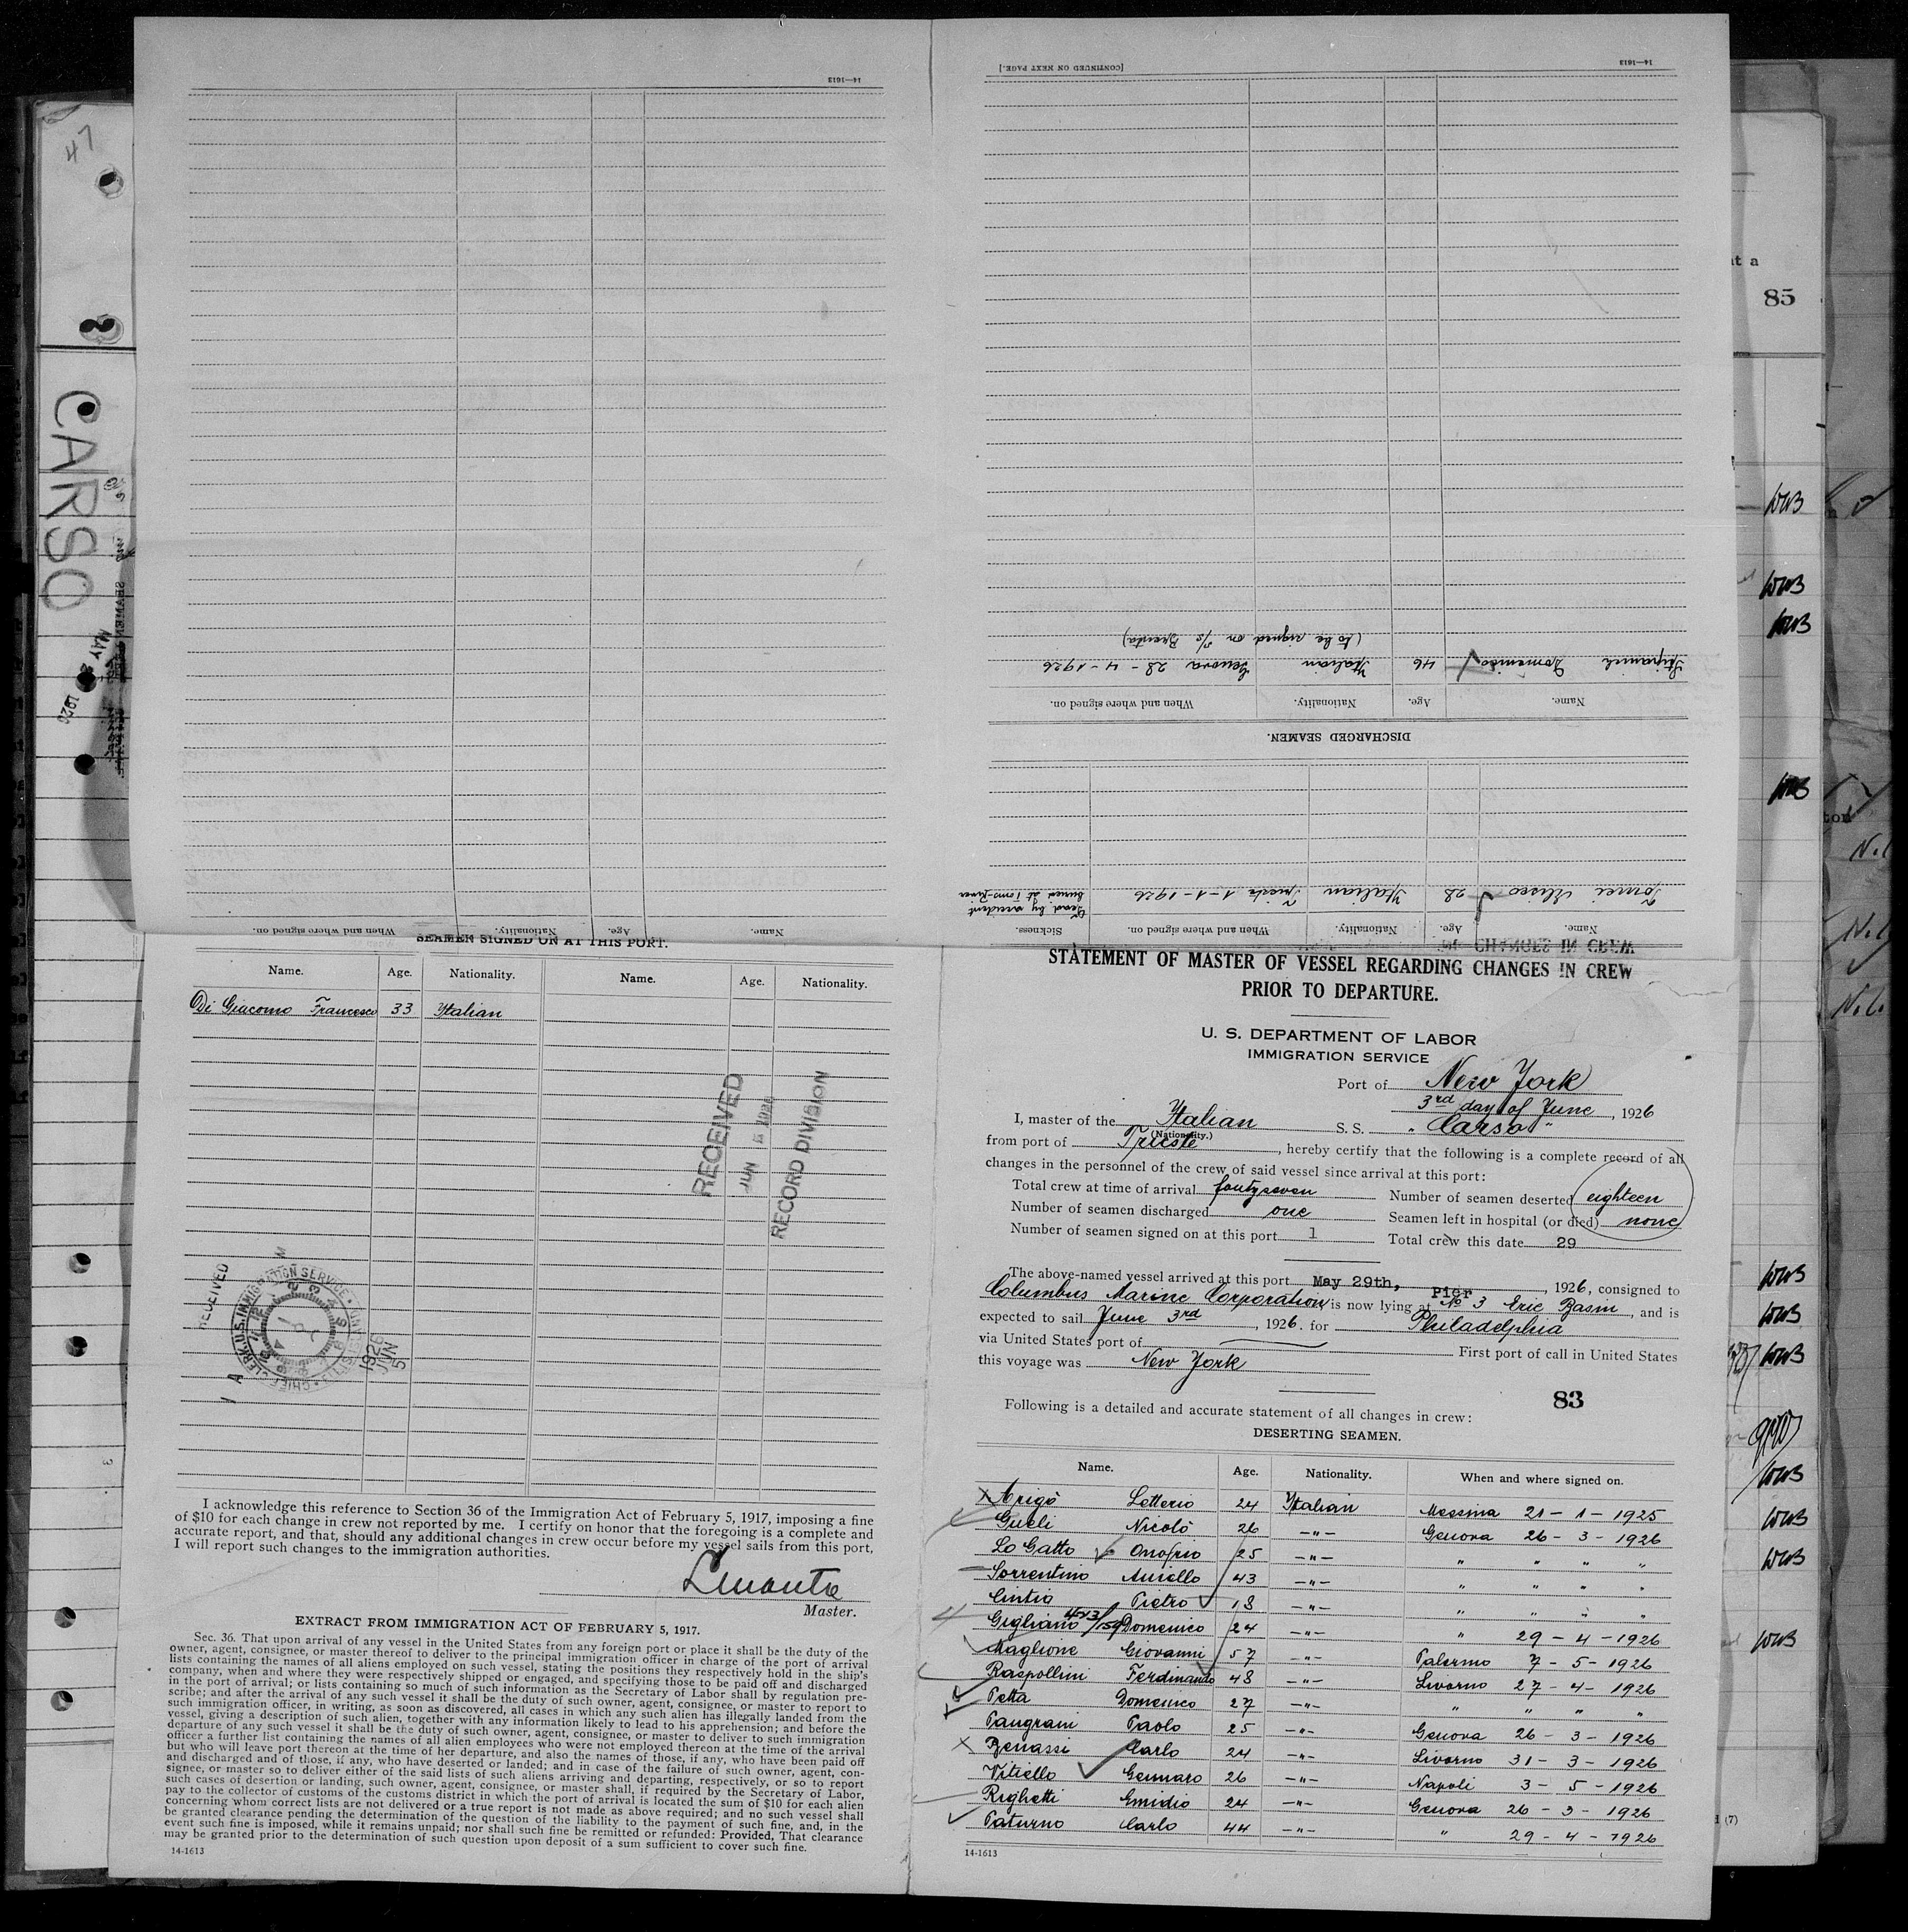 47
CARSO
MAY
1926
85
14—1613
14—1613
[CONTINUED ON NEXT PAGE.]
(to be signed on s/s Brenta)
Domenico 46 Italian Genova 28 - 4 - 1926
Name. Age. Nationality. When and where signed on.
DISCHARGED SEAMEN.
Tomei Eliseo 28 Italian Trieste 1 - 1 - 1926 Dead by accident buried at Toms-River
Name. Age. Nationality. When and where signed on. Sickness.
Name. Age. Nationality. When and where signed on.
SEAMEN SIGNED ON AT THIS PORT.
Name. Age. Nationality. Name. Age. Nationality.
Di Giacomo Francesco 33 Italian
RECEIVED
JUN 1926
RECORD DIVISION
RECEIVED
CHIEF CLERK, U.S. IMMIGRATION SERVICE
1926 JUN 5
I acknowledge this reference to Section 36 of the Immigration Act of February 5, 1917, imposing a fine
of $10 for each change in crew not reported by me. I certify on honor that the foregoing is a complete and
accurate report, and that, should any additional changes in crew occur before my vessel sails from this port,
I will report such changes to the immigration authorities.
Master.
EXTRACT FROM IMMIGRATION ACT OF FEBRUARY 5, 1917.
Sec. 36. That upon arrival of any vessel in the United States from any foreign port or place it shall be the duty of the
owner, agent, consignee, or master thereof to deliver to the principal immigration officer in charge of the port of arrival
lists containing the names of all aliens employed on such vessel, stating the positions they respectively hold in the ship's
company, when and where they were respectively shipped or engaged, and specifying those to be paid off and discharged
in the port of arrival; or lists containing so much of such information as the Secretary of Labor shall by regulation pre-
scribe; and after the arrival of any such vessel it shall be the duty of such owner, agent, consignee, or master to report to
such immigration officer, in writing, as soon as discovered, all cases in which any such alien has illegally landed from the
vessel, giving a description of such alien, together with any information likely to lead to his apprehension; and before the
departure of any such vessel it shall be the duty of such owner, agent, consignee, or master to deliver to such immigration
officer a further list containing the names of all alien employees who were not employed thereon at the time of the arrival
but who will leave port thereon at the time of her departure, and also the names of those, if any, who have been paid off
and discharged and of those, if any, who have deserted or landed; and in case of the failure of such owner, agent, con-
signee, or master so to deliver either of the said lists of such aliens arriving and departing, respectively, or so to report
such cases of desertion or landing, such owner, agent, consignee, or master shall, if required by the Secretary of Labor,
pay to the collector of customs of the customs district in which the port of arrival is located the sum of $10 for each alien
concerning whom correct lists are not delivered or a true report is not made as above required; and no such vessel shall
be granted clearance pending the determination of the question of the liability to the payment of such fine, and, in the
event such fine is imposed, while it remains unpaid; nor shall such fine be remitted or refunded: Provided, That clearance
may be granted prior to the determination of such question upon deposit of a sum sufficient to cover such fine.
14-1613
STATEMENT OF MASTER OF VESSEL REGARDING CHANGES IN CREW
PRIOR TO DEPARTURE.
U. S. DEPARTMENT OF LABOR
IMMIGRATION SERVICE
Port of New York
3rd day of June, 1926
I, master of the Italian S. S. "Carso"
(Nationality.)
from port of Trieste, hereby certify that the following is a complete record of all
changes in the personnel of the crew of said vessel since arrival at this port:
Total crew at time of arrival fourtyseven Number of seamen deserted eighteen
Number of seamen discharged one Seamen left in hospital (or died) none
Number of seamen signed on at this port 1 Total crew this date 29
The above-named vessel arrived at this port May 29th, 1926, consigned to
Columbus Marine Corporation is now lying at Pier No 3 Erie Basin, and is
expected to sail June 3rd, 1926. for Philadelphia
via United States port of First port of call in United States
this voyage was New York
83
Following is a detailed and accurate statement of all changes in crew:
DESERTING SEAMEN.
Name. Age. Nationality. When and where signed on.
Arigò Letterio 24 Italian Messina 21 - 1 - 1925
Gueli Nicolò 26 —"— Genova 26 - 3 - 1926
Lo Gatto Onofrio 25 —"— " " " "
Sorrentino Aniello 43 —"— " " " "
Cintio Pietro 18 —"— " " " "
Gigliano Domenico 24 —"— " 29 - 4 - 1926
Maglione Giovanni 57 —"— Palermo 7 - 5 - 1926
Raspollini Ferdinando 48 —"— Livorno 27 - 4 - 1926
Petta Domenico 27 —"— " " " "
Pangrani Paolo 25 —"— Genova 26 - 3 - 1926
Benassi Carlo 24 —"— Livorno 31 - 3 - 1926
Vitiello Gennaro 26 —"— Napoli 3 - 5 - 1926
Righetti Emidio 24 —"— Genova 26 - 3 - 1926
Paturno Carlo 44 —"— " 29 - 4 - 1926
14-1613